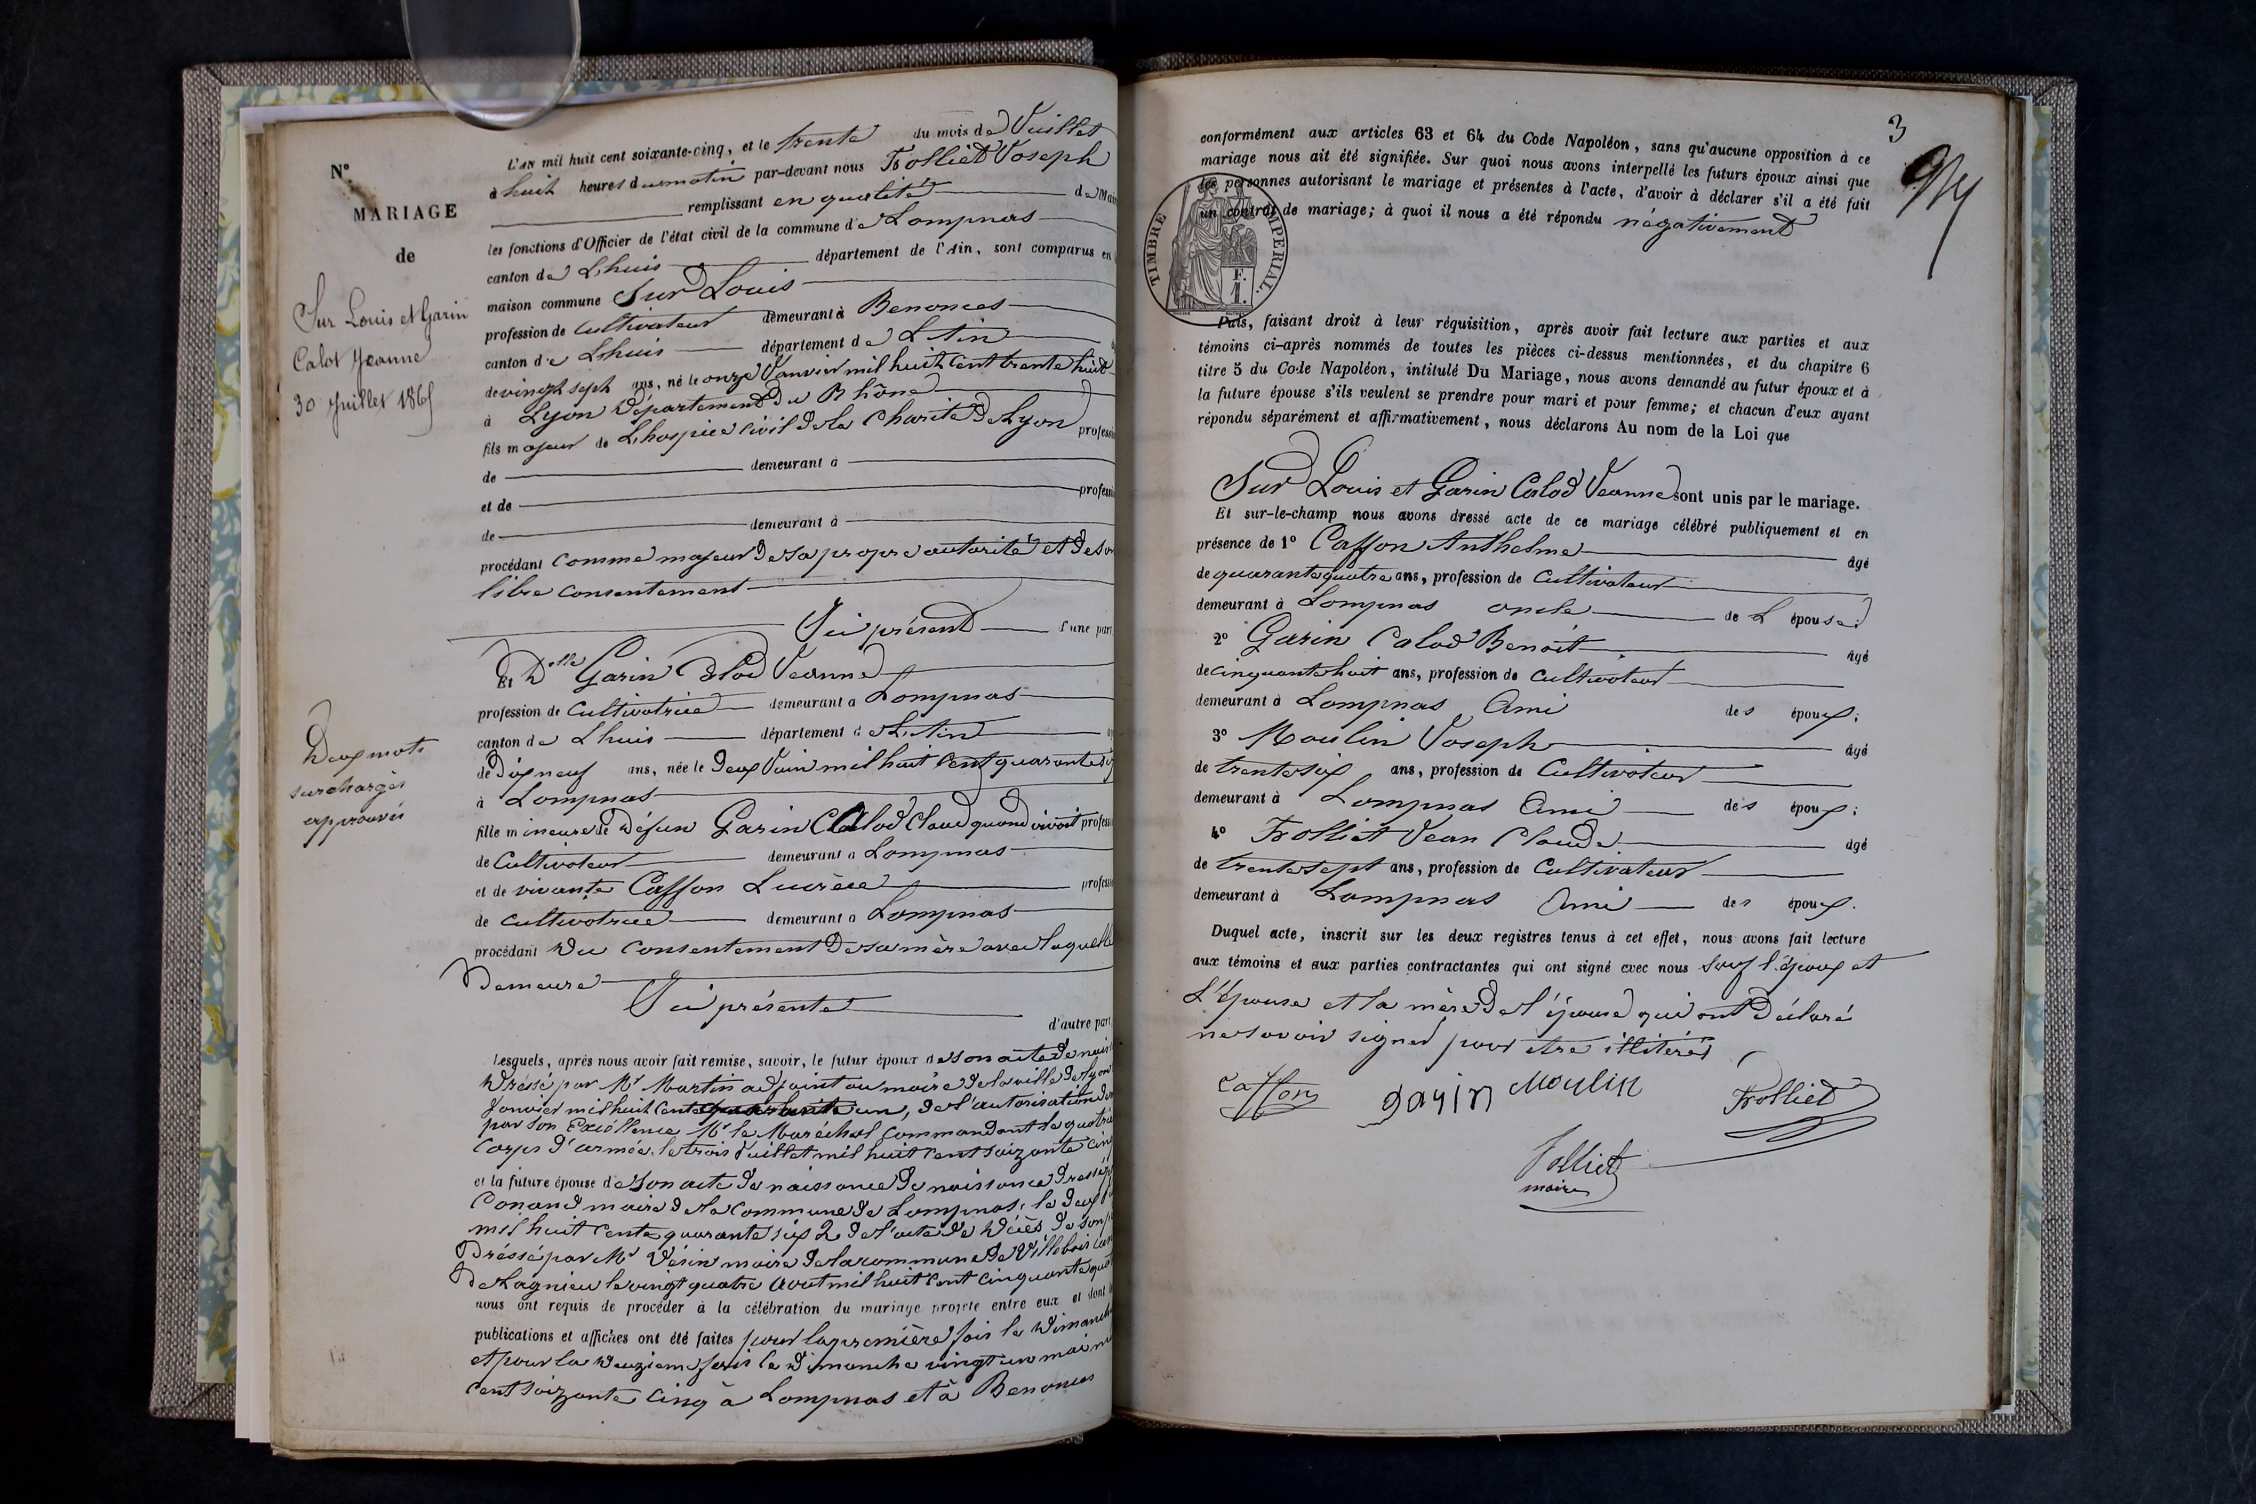 N°.
MARIAGE
de
Sur Louis et Garin
Calod Jeanne
30 Juillet 1865
Deux mots
surchargés
approuvés
L'AN mil huit cent soixante-cinq, et le trente du mois de Juillet
à huit heures du matin par-devant nous Trolliet Joseph
remplissant en qualité de Mai
les fonctions d'Officier de l'état civil de la commune de Lompnas
canton de Lhuis département de l'Ain, sont comparus en
maison commune Sur Louis
profession de Cultivateur demeurant à Benonces
canton de Lhuis département de L'Ain
de vingt sept ans, né le onze Janvier mil huit cent trente huit
à Lyon Département du Rhône
fils majeur de L'hospice civil de la Charité de Lyon professi
de demeurant à
et de professi
de demeurant à
procédant comme majeur de sa propre autorité et de son
libre consentement
Ici présent d'une part
Et Dlle Garin Calod Jeanne
profession de Cultivatrice demeurant à Lompnas
canton de Lhuis département de L'Ain
de dix neuf ans, née le deux Juin mil huit cent quarante six
à Lompnas
fille mineure de Défun Garin Calod Claud quand vivoit profess
de Cultivateur demeurant à Lompnas
et de vivante Caffon Lucrèce professi
de cultivatrice demeurant à Lompnas
procédant Du Consentement De sa mère avec laquelle
Demeure
Ici présente
d'autre part
Lesquels, après nous avoir fait remise, savoir, le futur époux de son acte de nais
Dressé par Mr Martin adjoint au maire de la ville de Lyon
Janvier mil huit cent un, de l'autorisation
par Son Excellence Mr le Maréchal Commandant le quatriè
Corps d'armée, le trois Juillet mil huit cent soixante cinq
et la future épouse de Son acte de naissance de naissance dressé
Conand maire de la Commune de Lompnas, le deux
mil huit cent quarante six 2 de l'acte de Décès de son p
Dréssé par Mr Vésin maire de la commune de Villebois can
De Lagnieu le vingt quatre Avout mil huit cent cinquante quat
nous ont requis de procéder à la célébration du mariage projeté entre eux et dont
publications et affiches ont été faites pour la première fois le Dimanche
et pour la deuxieme fois le Dimanche vingt un mai m
cent soixante cinq à Lompnas et à Benonces
3
conformément aux articles 63 et 64 du Code Napoléon, sans qu'aucune opposition à ce
mariage nous ait été signifiée. Sur quoi nous avons interpellé les futurs époux ainsi que
les personnes autorisant le mariage et présentes à l'acte, d'avoir à déclarer s'il a été fait
un contrat de mariage; à quoi il nous a été répondu négativement
TIMBRE IMPERIAL.
Puis, faisant droit à leur réquisition, après avoir fait lecture aux parties et aux
témoins ci-après nommés de toutes les pièces ci-dessus mentionnées, et du chapitre 6
titre 5 du Code Napoléon, intitulé Du Mariage, nous avons demandé au futur époux et à
la future épouse s'ils veulent se prendre pour mari et pour femme; et chacun d'eux ayant
répondu séparément et affirmativement, nous déclarons Au nom de la Loi que
Sur Louis et Garin Calod Jeanne sont unis par le mariage.
Et sur-le-champ nous avons dressé acte de ce mariage célébré publiquement et en
présence de 1° Caffon Anthelme âgé
de quarante quatre ans, profession de Cultivateur
demeurant à Lompnas oncle de L épouse;
2° Garin Calod Benoit âgé
de cinquante huit ans, profession de Cultivateur
demeurant à Lompnas Ami des époux;
3° Moulin Joseph âgé
de trente six ans, profession de Cultivateur
demeurant à Lompnas Ami des époux;
4° Trolliet Jean Claude âgé
de trente sept ans, profession de Cultivateur
demeurant à Lompnas Ami des époux.
Duquel acte, inscrit sur les deux registres tenus à cet effet, nous avons fait lecture
aux témoins et aux parties contractantes qui ont signé avec nous sauf l'époux et
L'épouse et la mère de l'épouse qui ont Déclaré
ne savoir signer pour etre illitérés
Caffon garin Moulin Trolliet
Trolliet
maire